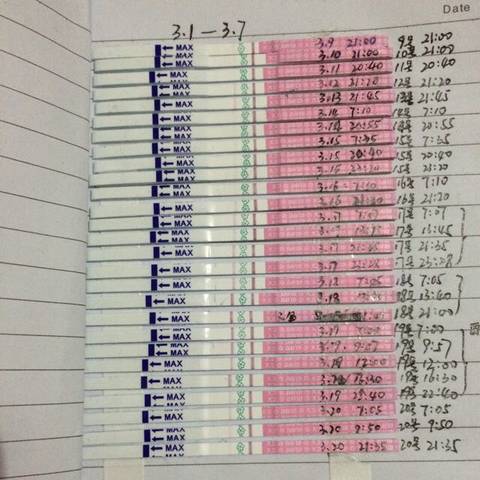 Date
3.1—3.7
← MAX 3.9 21:00 9号 21:00
← MAX 3.10 21:00 10号 21:00
← MAX 3.11 20:40 11号 20:40
← MAX 3.12 21:20 12号 21:20
← MAX 3.13 21:45 13号 21:45
← MAX 3.14 7:10 14号 7:10
← MAX 3.14 20:55 14号 20:55
← MAX 3.15 7:35 15号 7:35
← MAX 3.15 20:40 15号 20:40
← MAX 15号 21:20
← MAX 3.16 7:10 16号 7:10
← MAX 3.16 16号 21:20
← MAX 3.17 7:07 17号 7:07
← MAX 17号 13:45
← MAX 3.17 21:35 17号 21:35
← MAX 3.17 17号 23:28
← MAX 7:05 18号 7:05
← MAX 3.18 18号 13:40
← MAX 18号 21:00
← MAX 3.19 7:00 19号 7:00
← MAX 9:57 19号 9:57
← MAX 12:00 19号 12:00
← MAX 16:30 19号 16:30
← MAX 3.19 22:40 19号 22:40
← MAX 3.20 7:05 20号 7:05
← MAX 3.20 9:50 20号 9:50
← MAX 3.20 21:35 20号 21:35